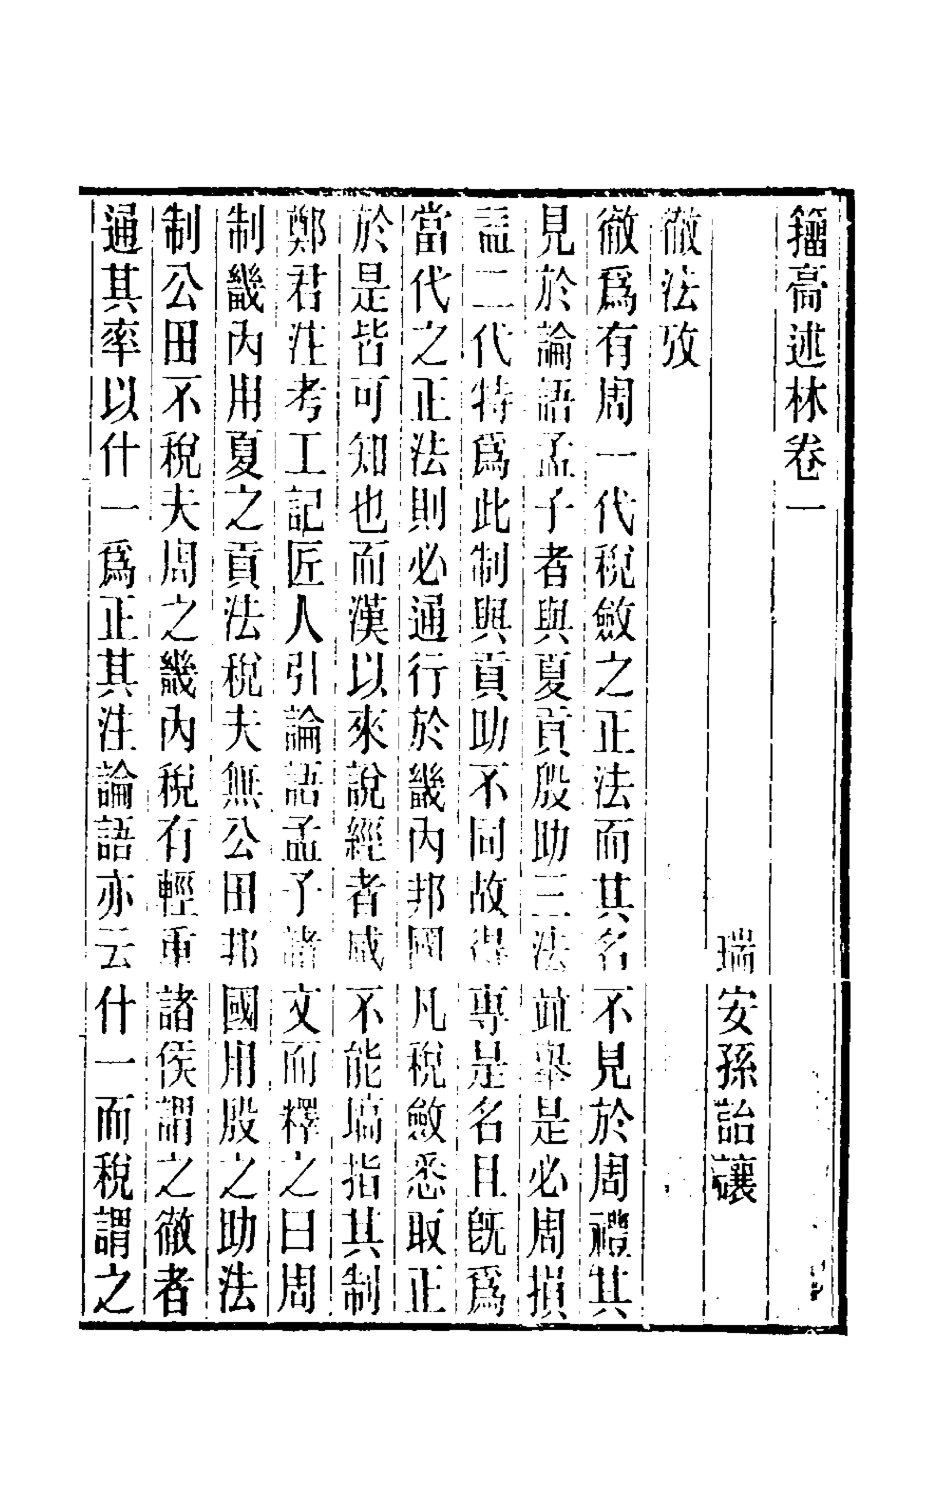 籒高述林卷一
瑞安孫詒讓
徹法攷
徹爲有周一代稅斂之正法而其名不見於周禮其
見於論語孟子者與夏貢殷助三法竝舉是必周損
益二代特爲此制與貢助不同故得專是名且旣爲
當代之正法則必通行於畿內邦國凡稅斂悉取正
於是皆可知也而漢以來說經者咸不能塙指其制
鄭君注考工記匠人引論語孟子諸文而釋之曰周
制畿內用夏之貢法稅夫無公田邦國用殷之助法
制公田不稅夫周之畿內稅有輕重諸侯謂之徹者
通其率以什一爲正其注論語亦云什一而稅謂之